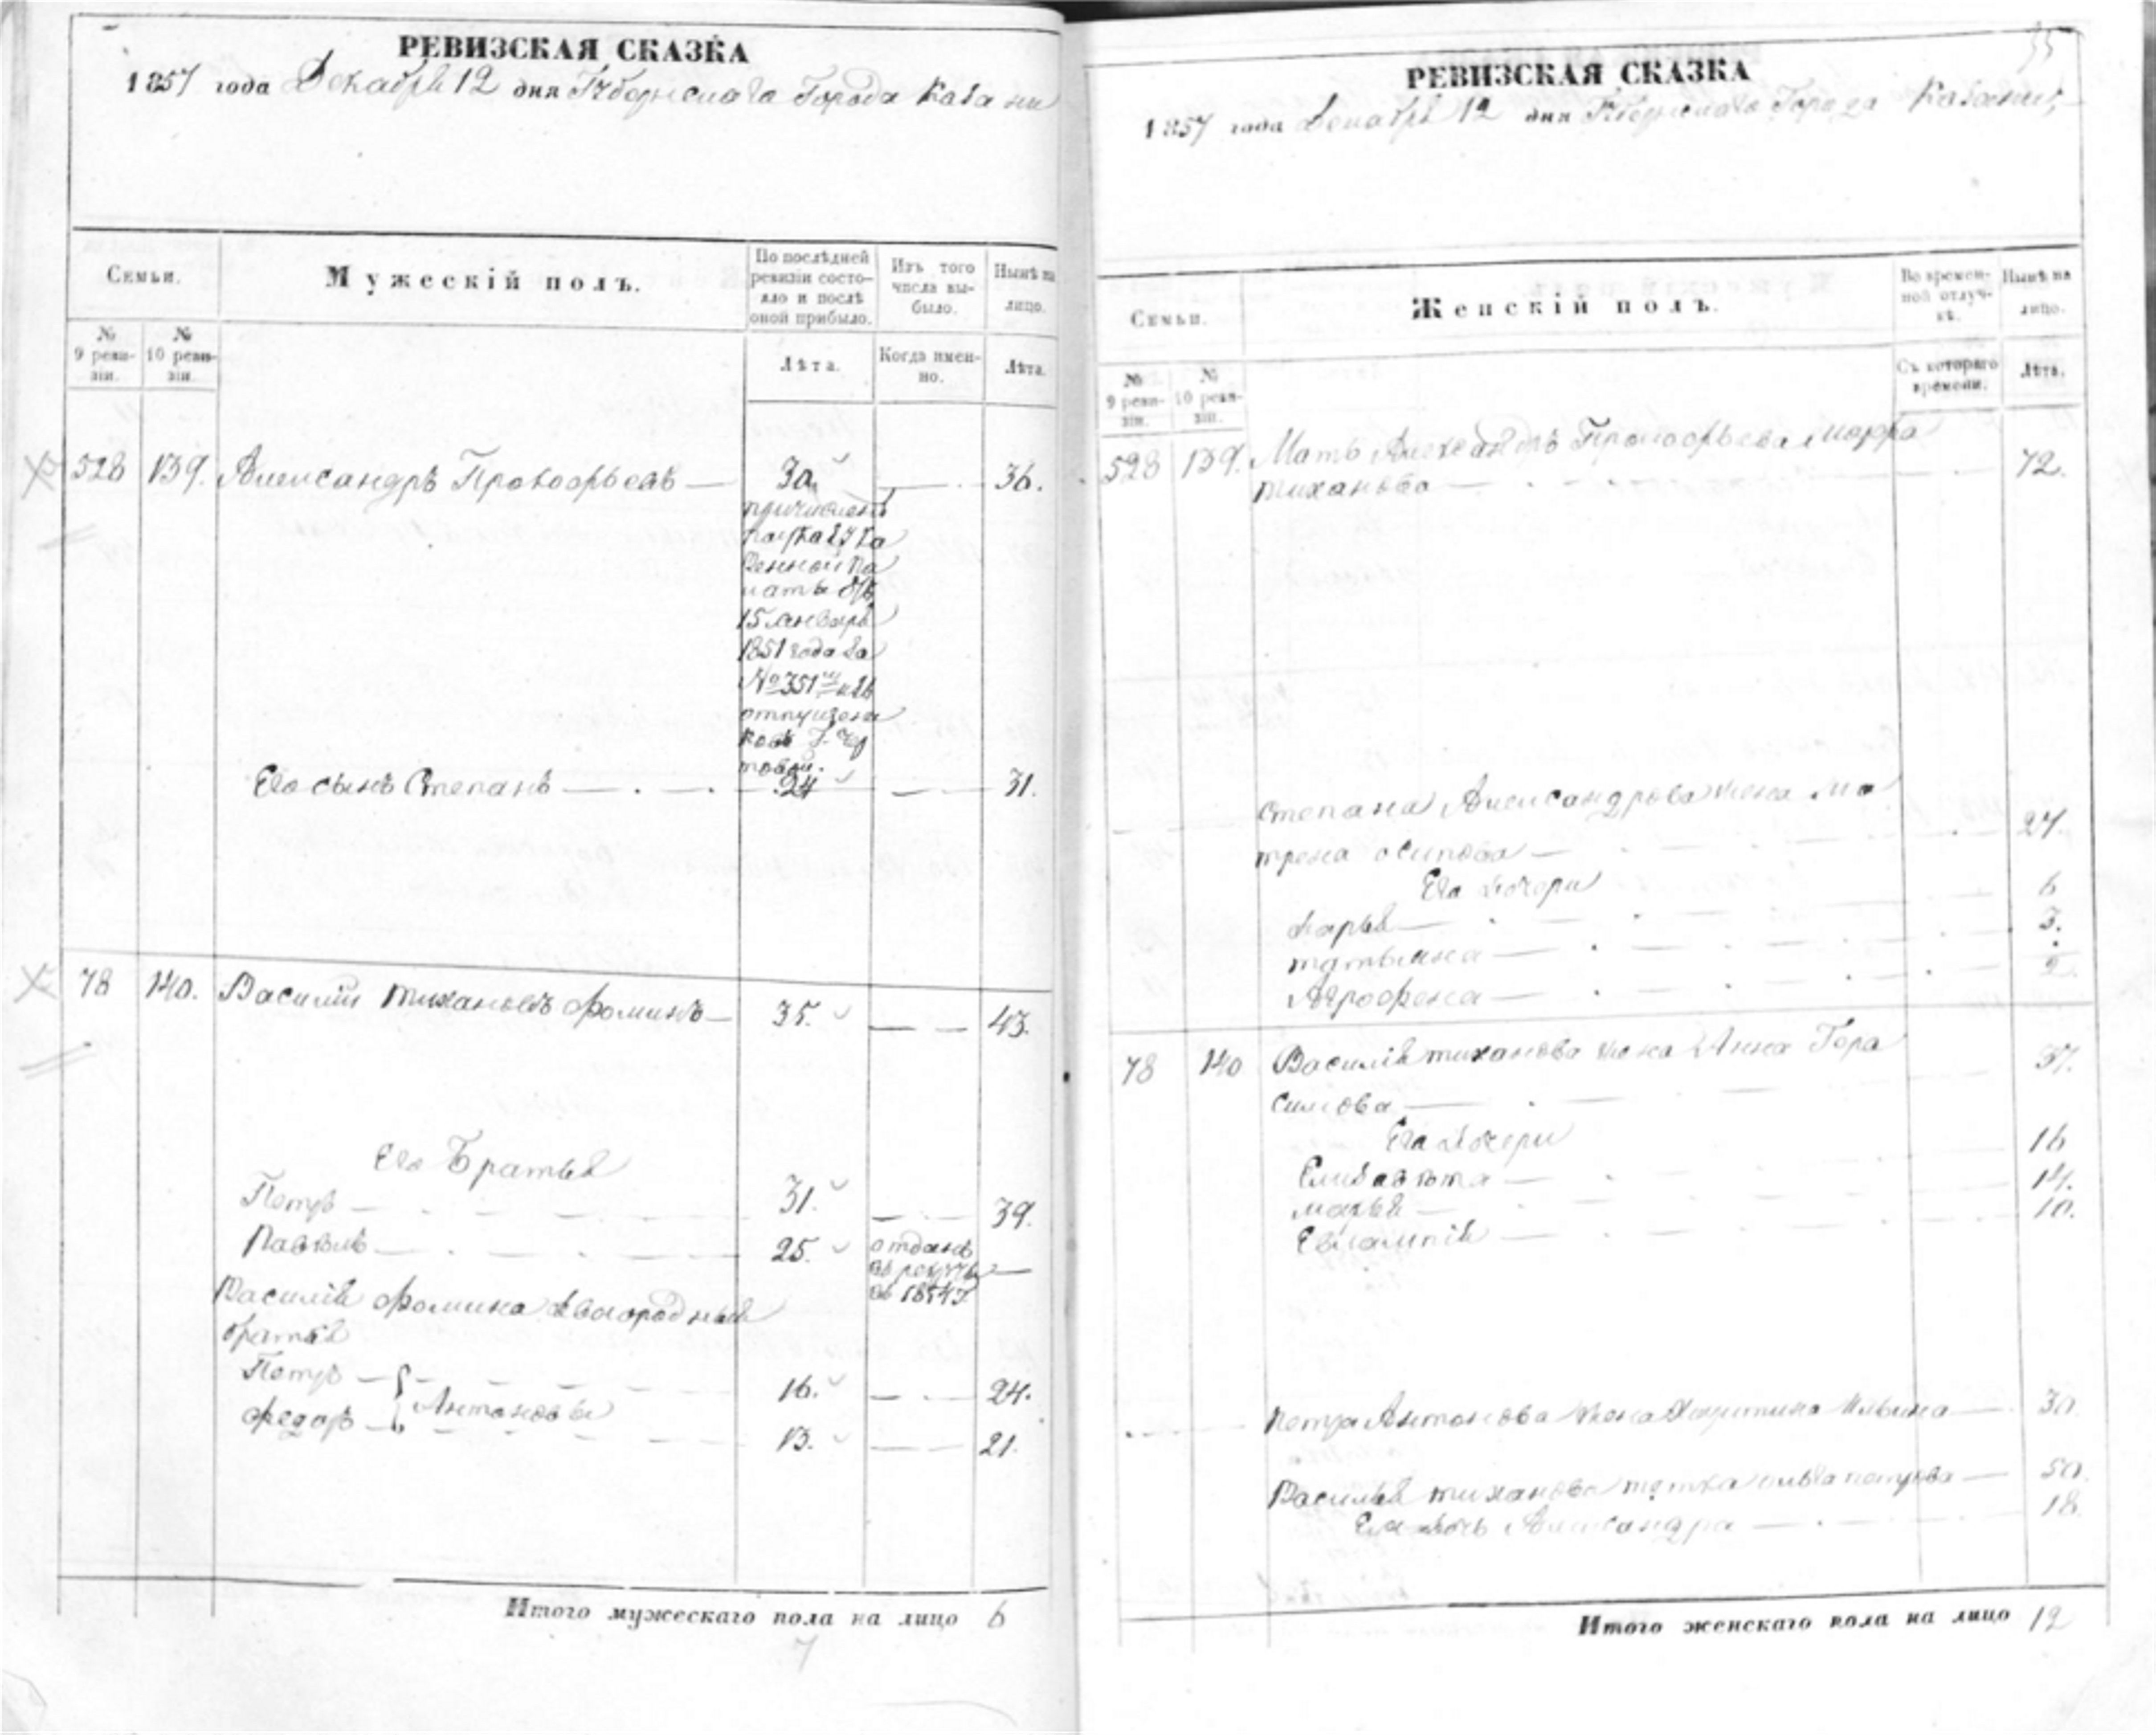 РЕВИЗСКАЯ СКАЗКА
1857 года Декабря 12 дня Губернскаго Города Казани
Семьи.
Мужескій полъ.
По послѣдней ревизіи состо-
яло и послѣ
оной прибыло.
Изъ того
числа вы-
было.
Нынѣ на
лицо.
№
9 реви-
зіи.
№
10 реви-
зіи.
Лѣта.
Когда имен-
но.
Лѣта.
528 139. Александръ Прокофьевъ 30 36.
причисленъ
по указу Ка
зенной Па
латы отъ
15 Января
1851 года за
№ 351 изъ
отпущенни
ковъ Г.
Его сынъ Степанъ 24 31.
78 140. Василій Тихановъ Фоминъ 35. 43.
Его Братья
Петръ 31. 39.
Павелъ 25. отданъ
въ рекруты
въ 1854 г.
Василія Фомина двоюродныя
братья
Петръ 16. 24.
Антоновы
Федоръ 13. 21.
Итого мужескаго пола на лицо 6
7
55
РЕВИЗСКАЯ СКАЗКА
1857 года Декабря 12 дня Губернскаго Города Казани,
Семьи.
Женскій полъ.
Во времен-
ной отлуч-
кѣ.
Нынѣ на
лицо.
№
9 реви-
зіи.
№
10 реви-
зіи.
Съ котораго
времени.
Лѣта.
528 139. Мать Александръ Прокофьева Марфа
Тиханова 72.
Степана Александрова жена Ма
трена Осипова 27.
Его дочери
Дарья 6
Татьяна 3.
Агрофена 2.
78 140 Василія Тиханова жена Анна Гора
симова 37.
Его дочери
Елизавѣта 16
Марья 14.
Евлампія 10.
Петра Антонова жена Устина Ильина 30
Василья Тиханова тетка Ольга Петрова 50.
Ея дочь Александра 18.
Итого женскаго пола на лицо 12